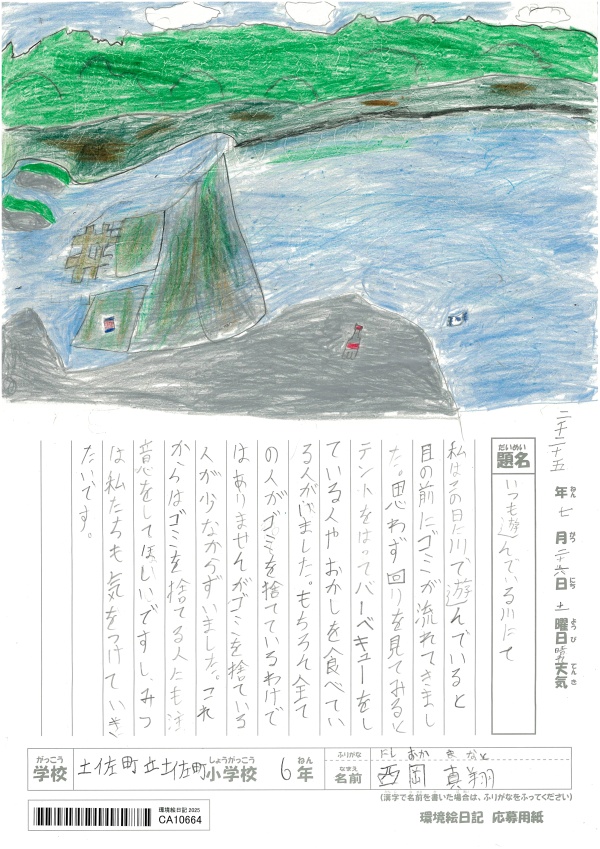 二千二十五年七月二十六日土曜日晴天気
ねん がつ にち ようび てんき
だいめい
題名
いつも遊んでいる川にて
私はこの日に川で遊んでいると
目の前にゴミが流れてきまし
た。思わず回りを見てみると
テントをはってバーベキューをし
ている人やおかしを食べてい
る人がいました。もちろん全て
の人がゴミを捨てているわけで
はありませんがゴミを捨ている
人が少なからずいました。これ
からはゴミを捨てる人にも注
意をしてほしいですし、みつ
は私たちも気をつけていき
たいです。
がっこう
学校
土佐町立土佐町小学校
しょうがっこう
6年
ねん
ふりがな
にしおか まなと
なまえ
名前
西岡 真翔
(漢字で名前を書いた場合は、ふりがなをふってください)
環境絵日記 2025
CA10664
環境絵日記 応募用紙